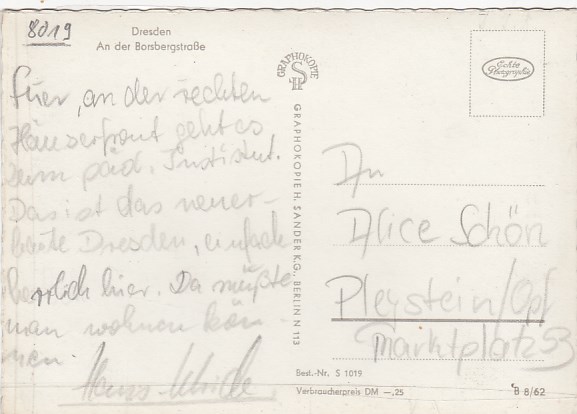 8019
Dresden
An der Borsbergstraße
Hier, an der rechten
Häuserfront geht es
zum päd. Institut.
Das ist das neuer-
baute Dresden, einfach
herrlich hier. Da müßte
man wohnen kön-
nen.
GRAPHOKOPIE
GRAPHOKOPIE H. SANDER K.G., BERLIN N 113
Echte
Photographie
An
Alice Schön
Pleystein/Opf
Marktplatz 53
Best.-Nr. S 1019
Verbraucherpreis DM —,25
B 8/62